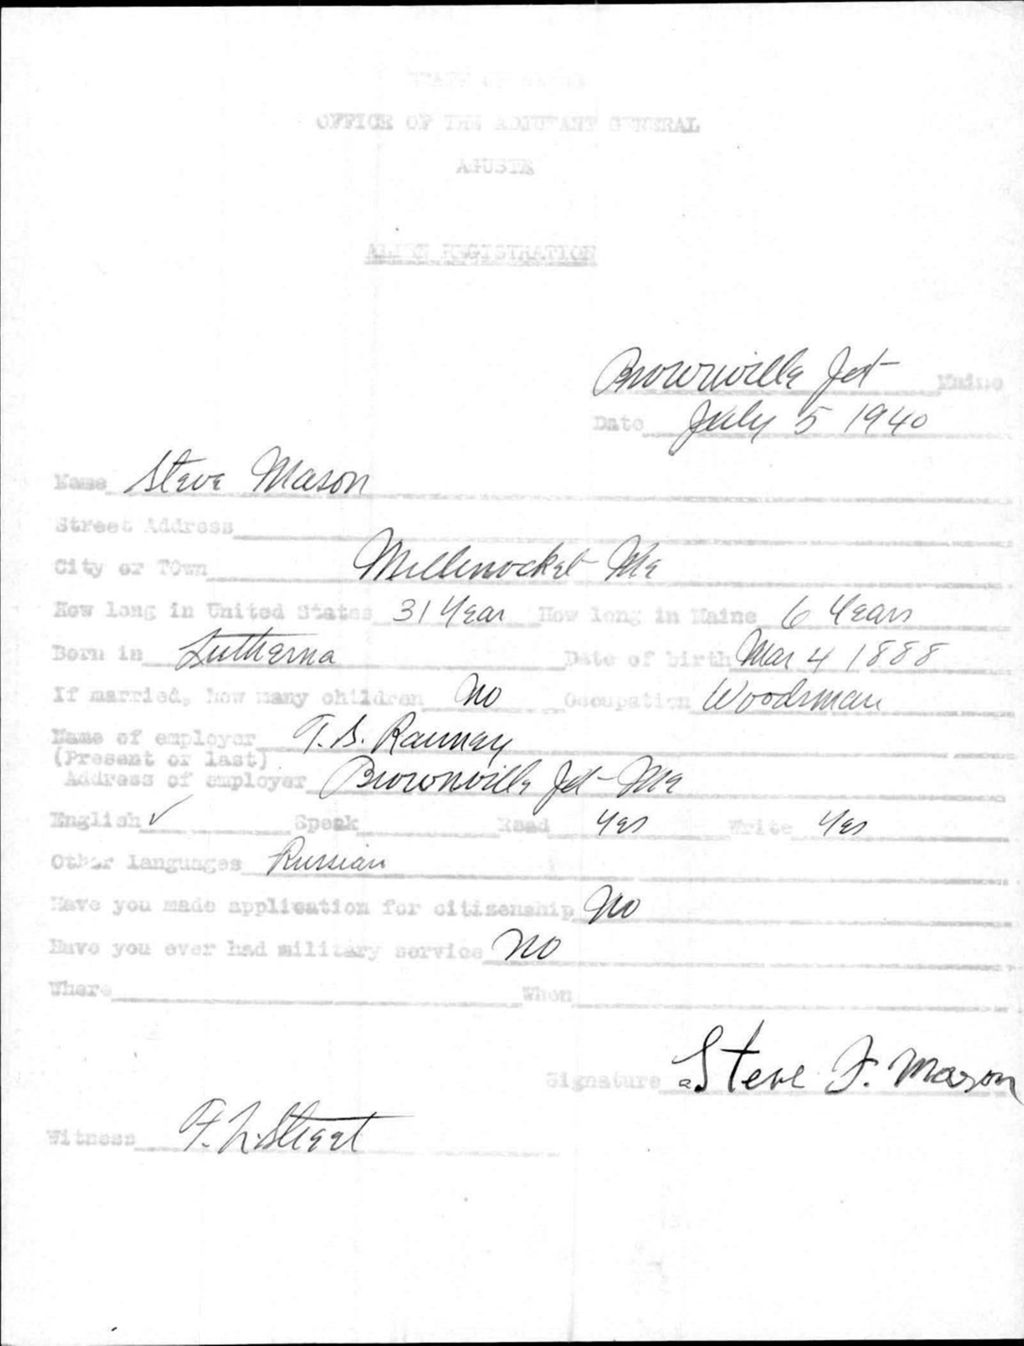 STATE OF MAINE
OFFICE OF THE ADJUTANT GENERAL
AGUSTA
ALIEN REGISTRATION
Brownville Jct Maine
Date July 5 1940
Name Steve Mason
Street Address
City or Town Millinocket Me
How long in United States 31 Year How long in Maine 6 Years
Born in Lutherna Date of birth Mar 4 1888
If married, how many children No Occupation Woodsman
Name of employer T. S. Ranney
(Present or last)
Address of employer Brownville Jct Me
English ✓ Speak Read Yes Write Yes
Other languages Russian
Have you made application for citizenship No
Have you ever had military service No
Where When
Signature Steve F. Mason
Witness F. L. Steert